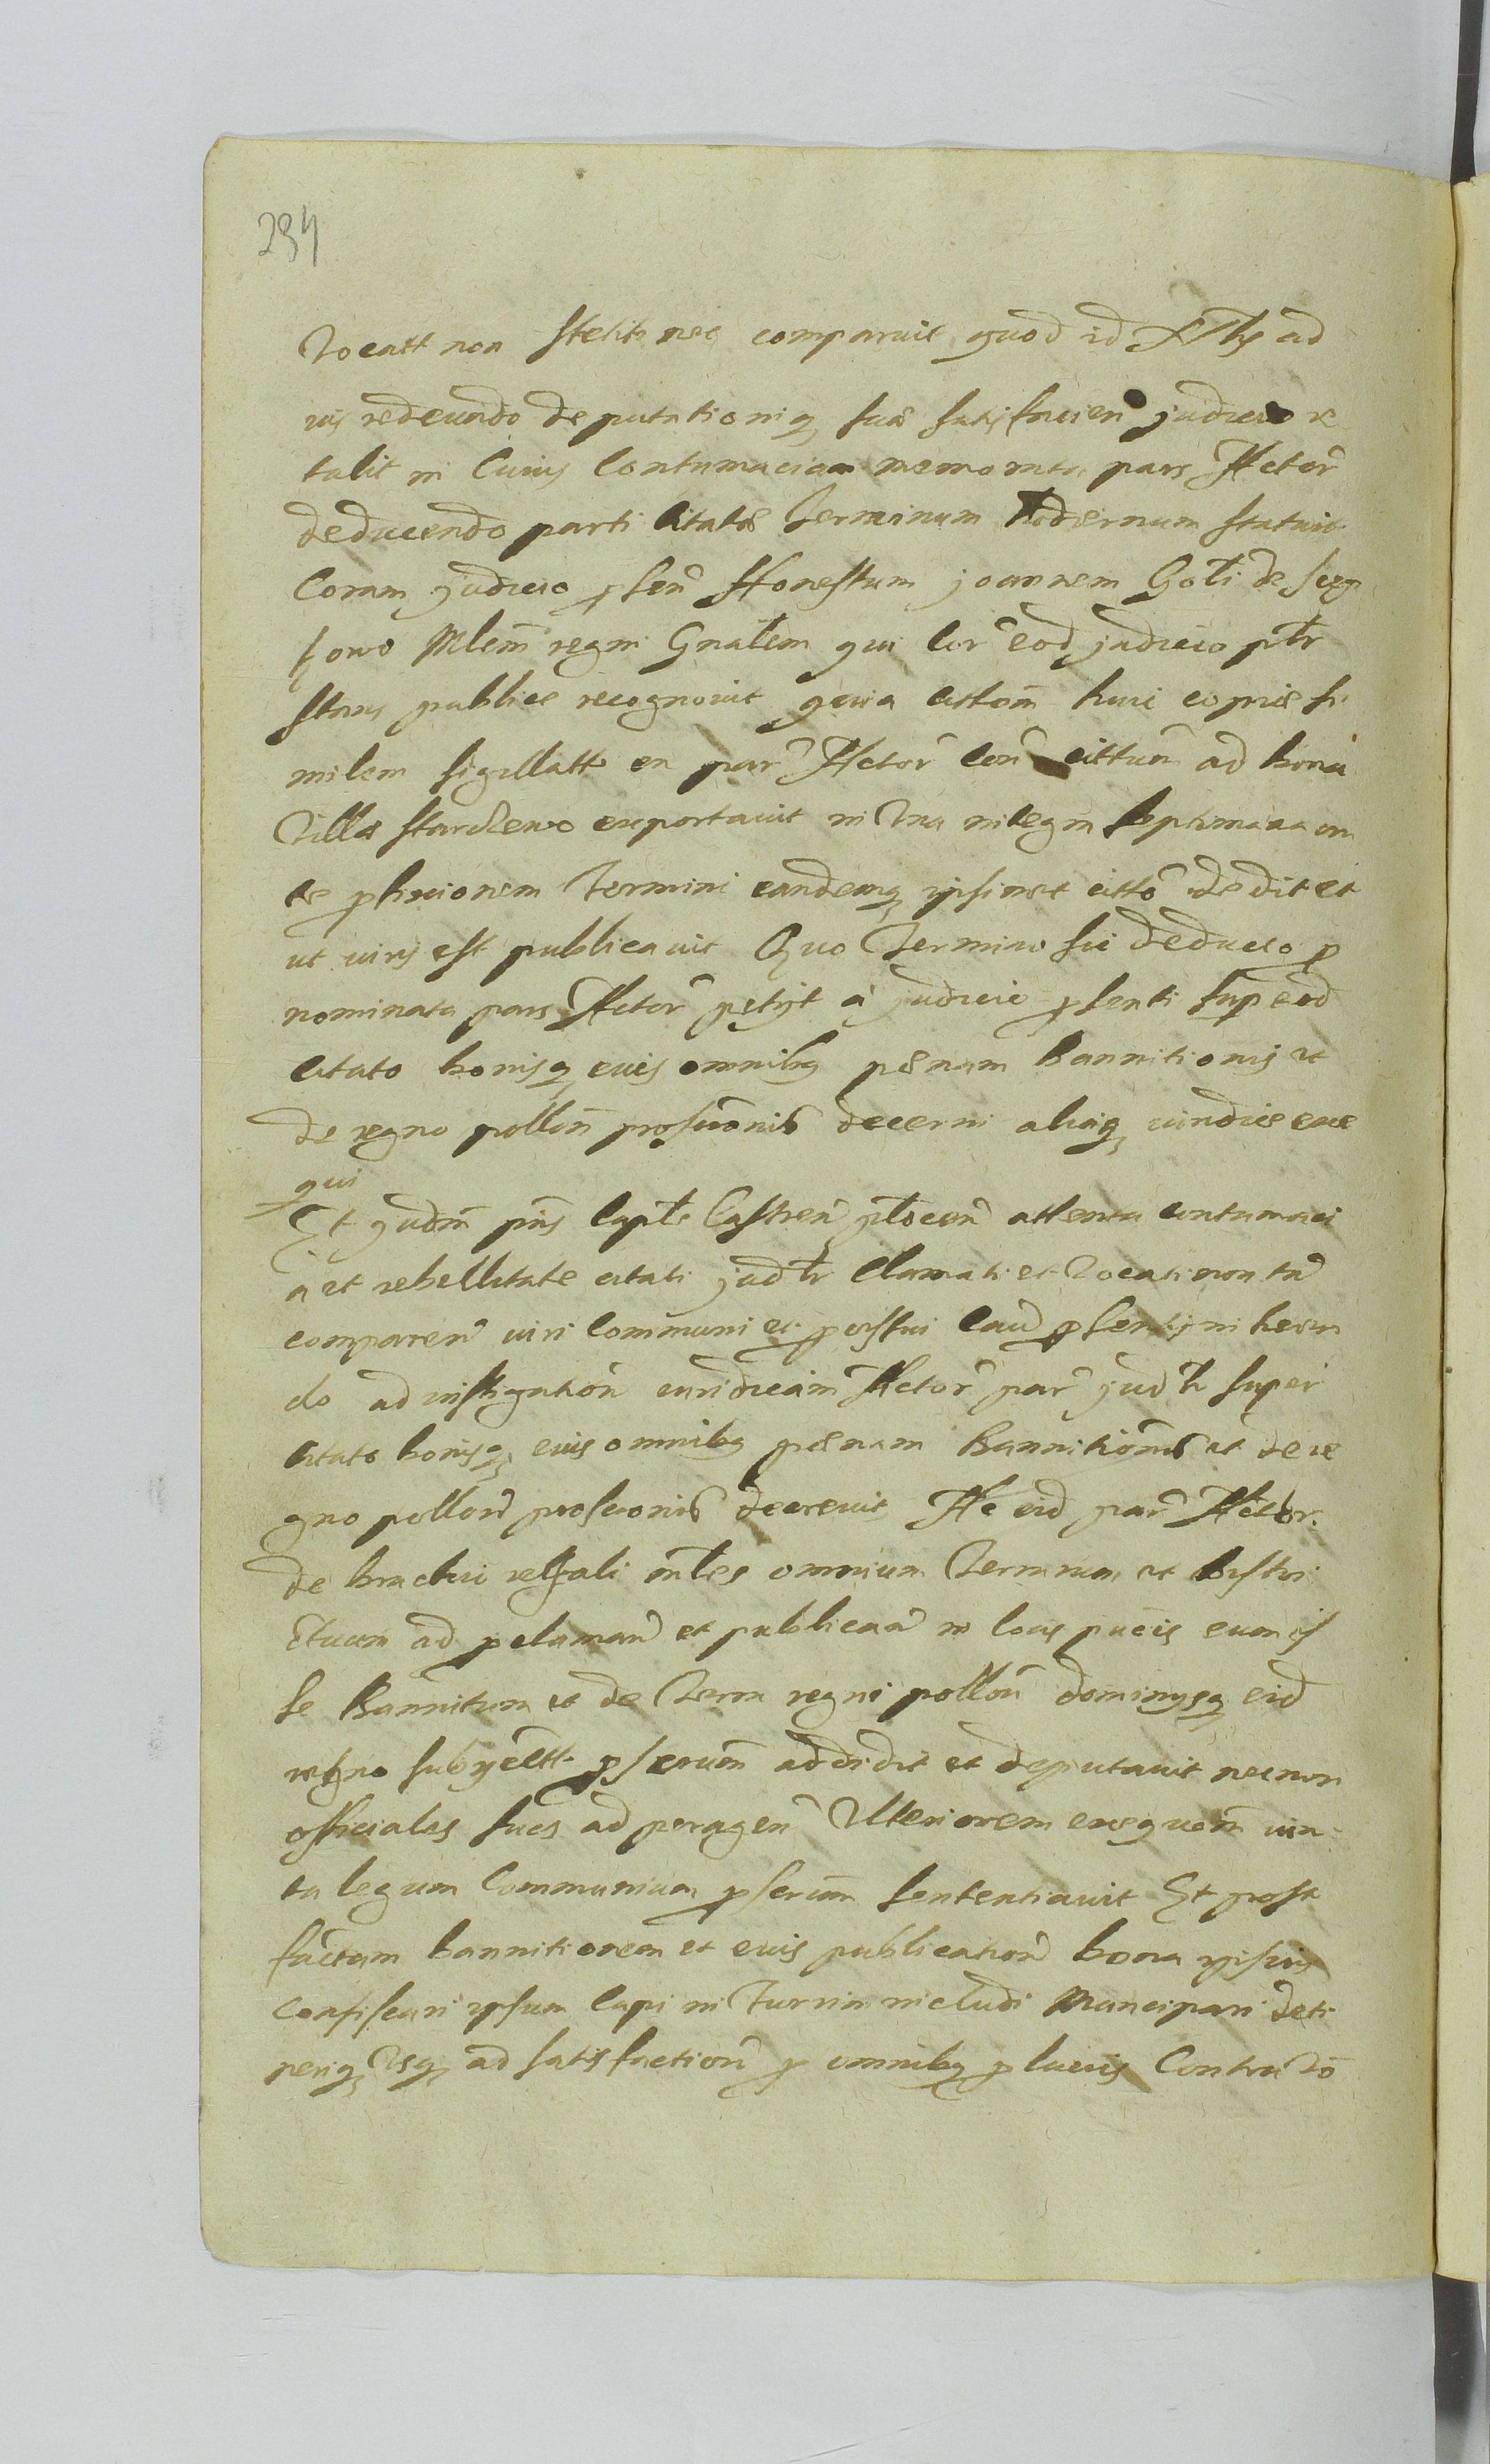 234
vocatt non stetit nec comparuit quod id ad
ius redeundo deputationiq suæ satisfacien judicio re
tulit in Cuius Contumaciam memorata pars Actor
deducendo parti Citatæ Terminum hodiernum statuit
Coram judicio psen Honestum joannem Goli de
sowo Mlem regni Gnalem qui cor eod judicio pltr
stans publice recognovit quia cittom huic copiæ si
milem sigillatt ex par Actor con cittum ad bona
Villæ exportavit in Una integra septimana an
te pfixionem Termini eandemq ipsimet citto dedit et
ut iuris est publicavit Quo Termino sic deducto p
nominata pars Actor petijt à judicio psenti sup eod
citato bonisq eius omnibq pænam bannitionis et
de regno pollon proscronis decerni aliasq iuridice exe
qui
Et judm pns Capitle Castren plocen attenta contumaci
a et rebellitate citati judtr Clamati et vocati non tn
comparen iuri communi et psenti inheren
do ad instigation iuridicam Actor par judtr super
citato bonisq eius omnibq pænam Bannitionis et de re
gno pollon proscronis decrevit Ac eid par Actor
de brachio regali mles omnium Terrarum et distri
ctuum ad pclaman et publican in locis pucis eum es
se Bannitum et de Terra regni pollon dominijsq eid
regno subiectt pscrum addidit et deputavit necnon
officiales suos ad peragen Ulteriorem exequom iux
ta legum Communium pscrum sententiavit Et post
factam bannitionem et eius publication bona ipsius
Confiscari ipsum Capi in Turrim includi Mancipari deti
neriq Usq ad satisfaction p omnibq plucris Contra Vo